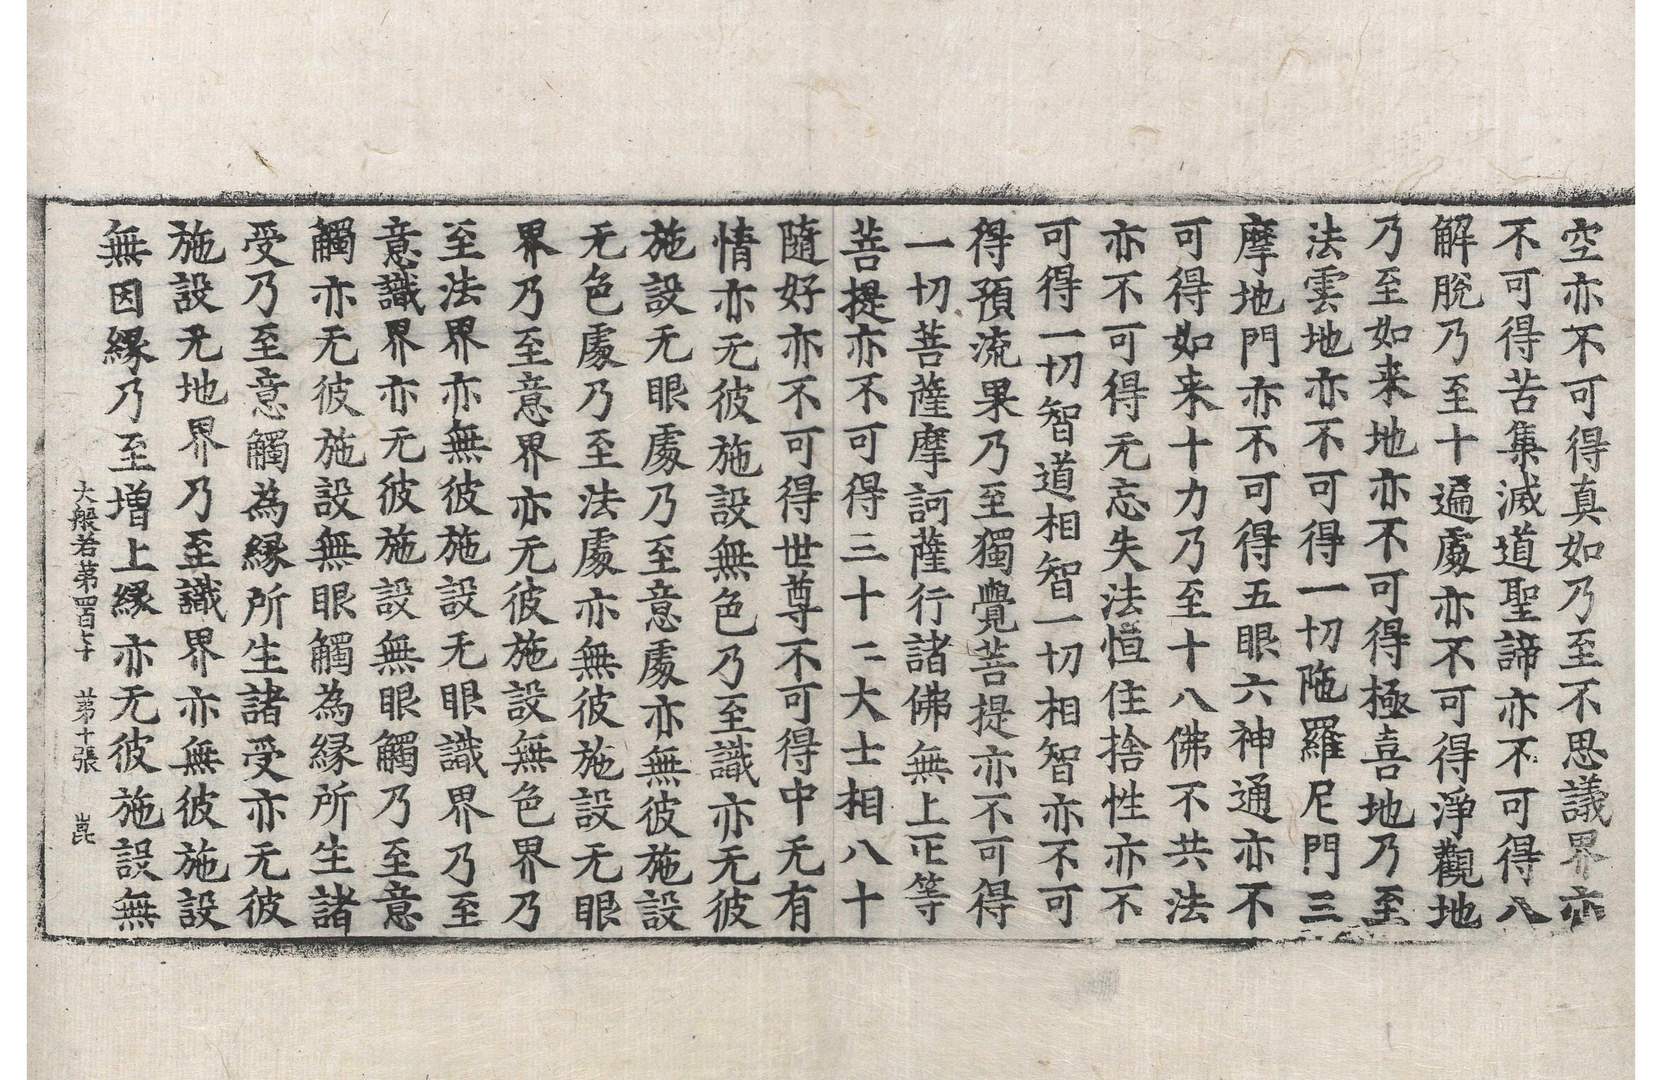 空亦不可得真如乃至不思議界亦
不可得苦集滅道聖諦亦不可得八
解脫乃至十遍處亦不可得淨觀地
乃至如来地亦不可得極喜地乃至
法雲地亦不可得一切陁羅尼門三
摩地門亦不可得五眼六神通亦不
可得如来十力乃至十八佛不共法
亦不可得无忘失法恒住捨性亦不
可得一切智道相智一切相智亦不可
得預流果乃至獨覺菩提亦不可得
一切菩薩摩訶薩行諸佛無上正等
菩提亦不可得三十二大士相八十
隨好亦不可得世尊不可得中无有
情亦无彼施設無色乃至識亦无彼
施設无眼處乃至意處亦無彼施設
无色處乃至法處亦無彼施設无眼
界乃至意界亦无彼施設無色界乃
至法界亦無彼施設无眼識界乃至
意識界亦无彼施設無眼觸乃至意
觸亦无彼施設無眼觸為緣所生諸
受乃至意觸為緣所生諸受亦无彼
施設无地界乃至識界亦無彼施設
無因緣乃至增上緣亦无彼施設無
大般若第四百七十 第十張 崑